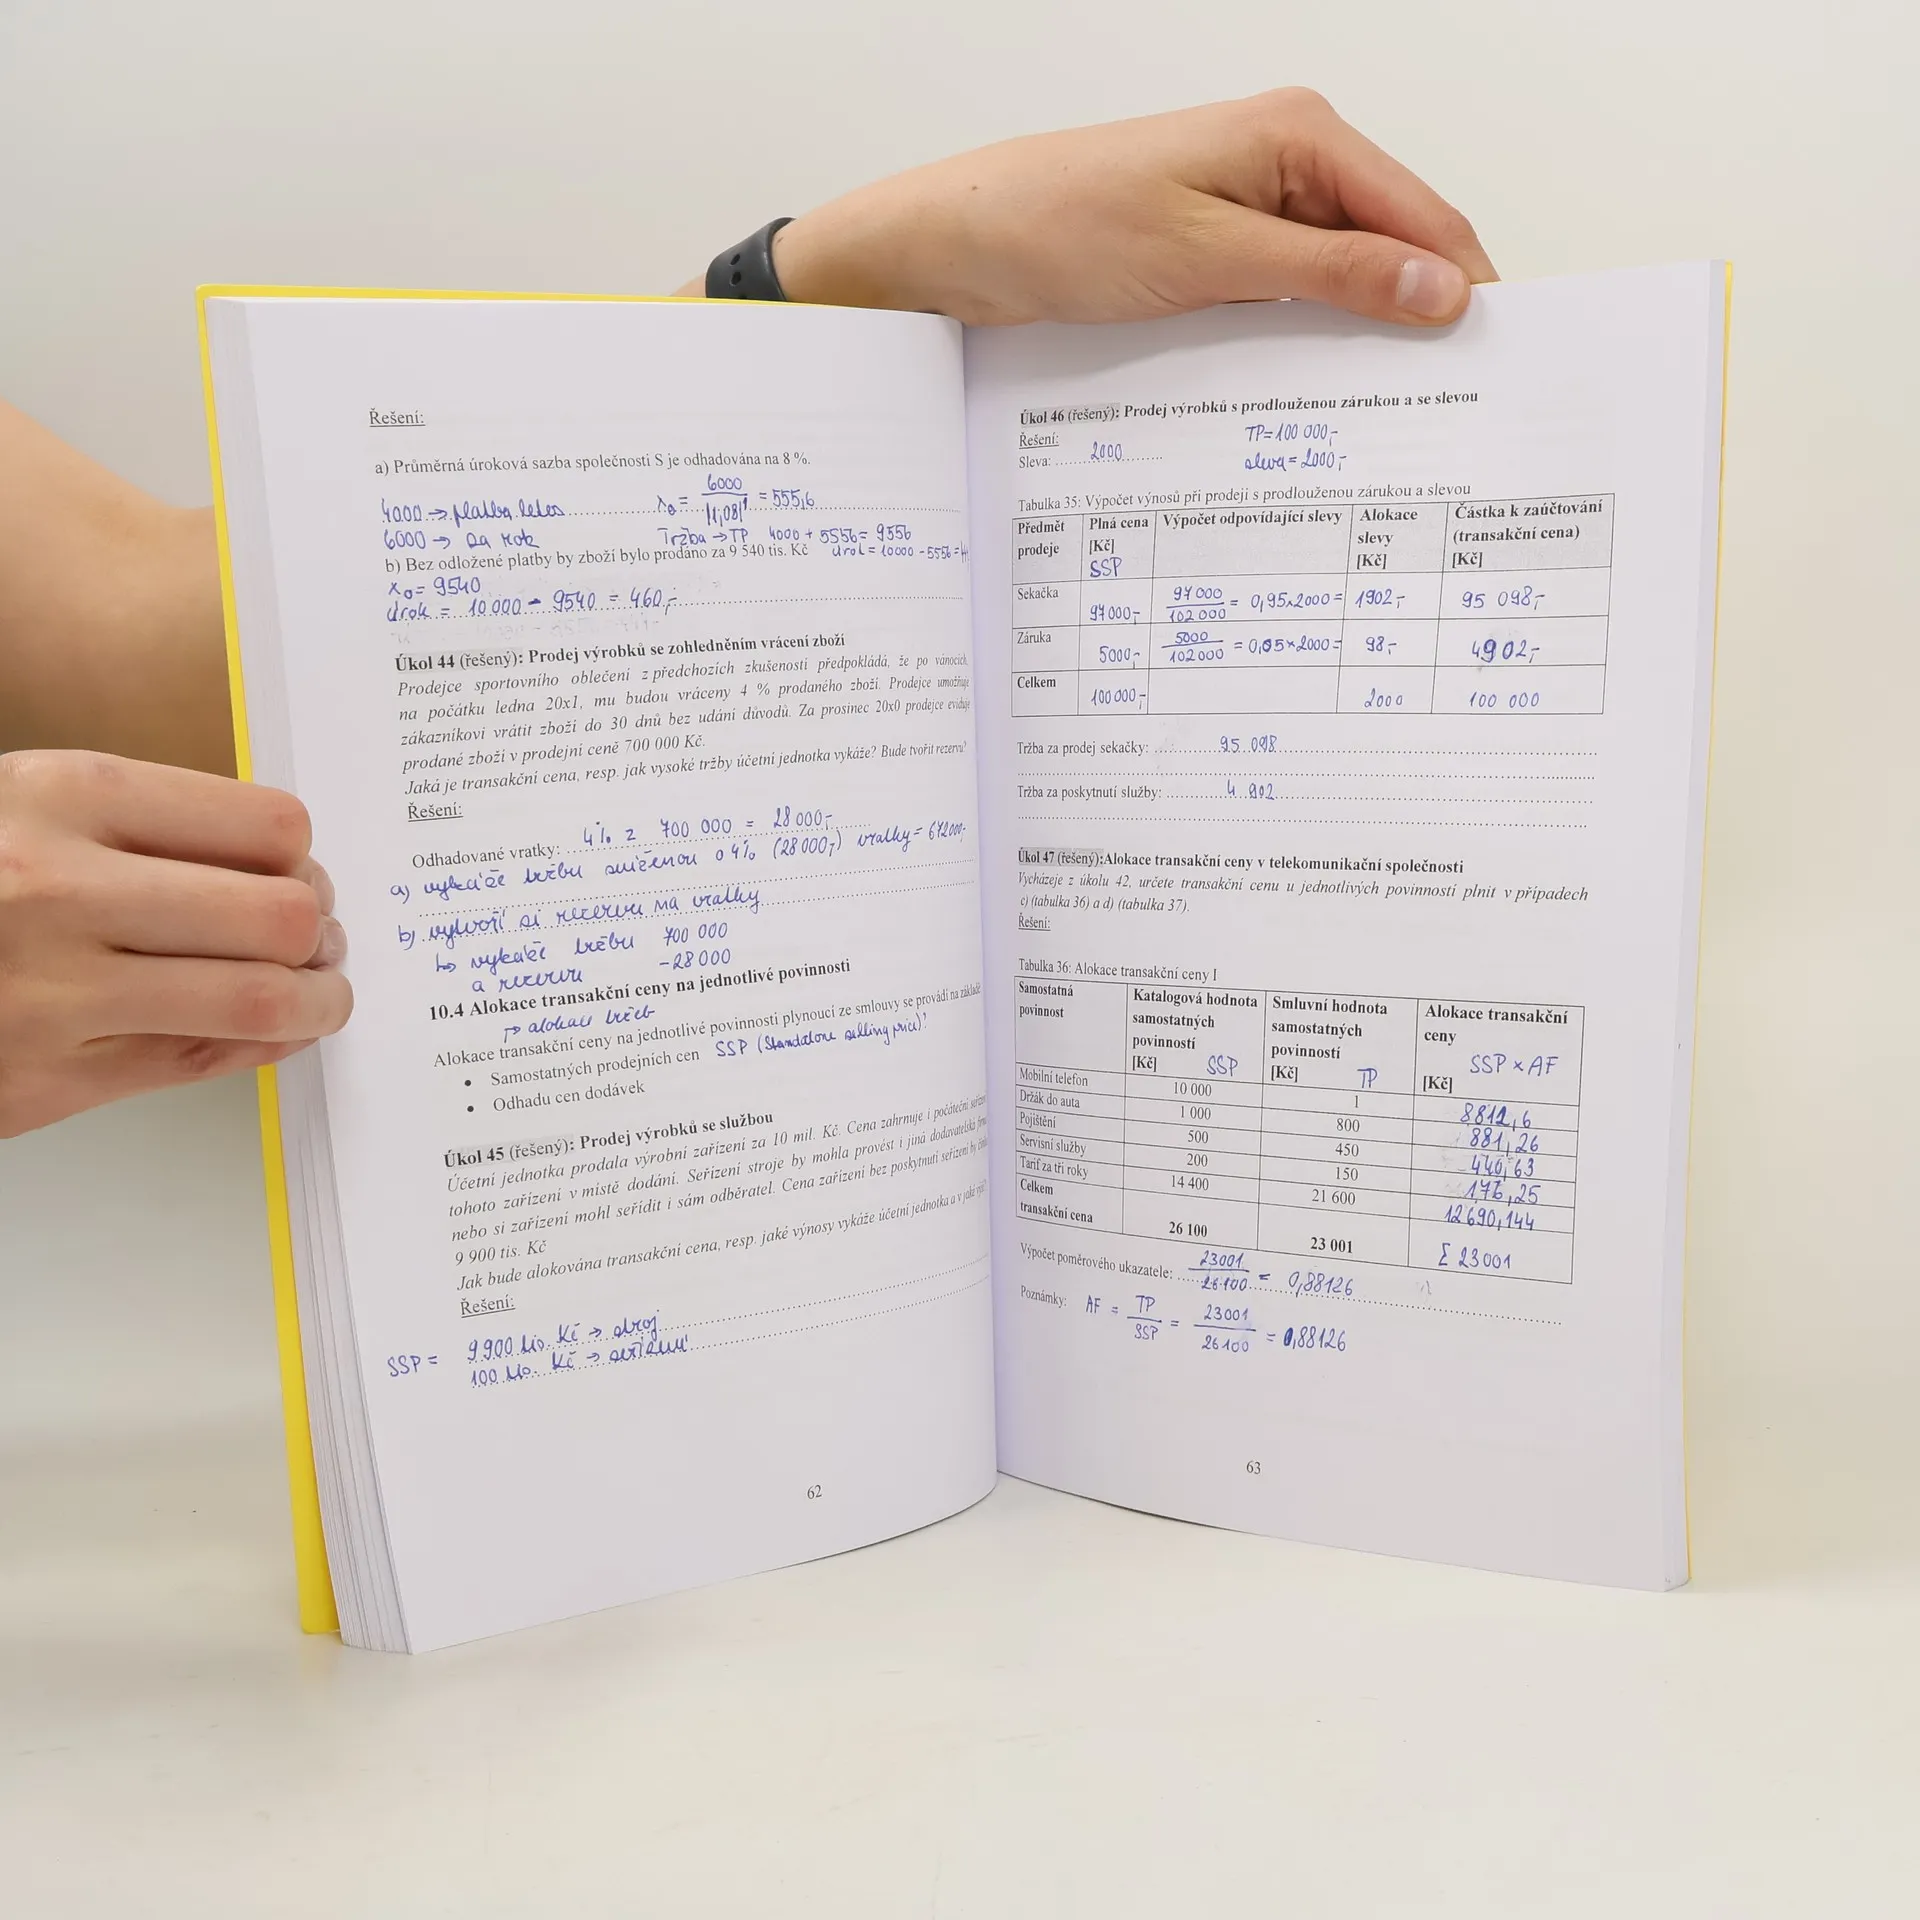 Řešení:
a) Průměrná úroková sazba společnosti S je odhadována na 8 %.
4000 → platba letos x₀ = 6000 / (1,08)¹ = 555,6
6000 → za rok Tržba → TP 4000 + 5556 = 9556
b) Bez odložené platby by zboží bylo prodáno za 9 540 tis. Kč úrok = 10000 - 5556 =
x₀ = 9540
úrok = 10 000 - 9540 = 460,-
Úkol 44 (řešený): Prodej výrobků se zohledněním vrácení zboží
Prodejce sportovního oblečení z předchozích zkušeností předpokládá, že po vánocích,
na počátku ledna 20x1, mu budou vráceny 4 % prodaného zboží. Prodejce umožňuje
zákazníkovi vrátit zboží do 30 dnů bez udání důvodů. Za prosinec 20x0 prodejce eviduje
prodané zboží v prodejní ceně 700 000 Kč.
Jaká je transakční cena, resp. jak vysoké tržby účetní jednotka vykáže? Bude tvořit rezervu?
Řešení:
Odhadované vratky: 4% z 700 000 = 28 000,-
a) vykáže tržbu sníženou o 4% (28 000,-) vratky = 672 000,-
b) vytvoří si rezervu na vratky
↳ vykáže tržbu 700 000
a rezervu -28 000
10.4 Alokace transakční ceny na jednotlivé povinnosti
↱ alokace tržeb
Alokace transakční ceny na jednotlivé povinnosti plynoucí ze smlouvy se provádí na základě
• Samostatných prodejních cen SSP (Standalone selling price)!
• Odhadu cen dodávek
Úkol 45 (řešený): Prodej výrobků se službou
Účetní jednotka prodala výrobní zařízení za 10 mil. Kč. Cena zahrnuje i počáteční seřízení
tohoto zařízení v místě dodání. Seřízení stroje by mohla provést i jiná dodavatelská firma
nebo si zařízení mohl seřídit i sám odběratel. Cena zařízení bez poskytnutí seřízení by činila
9 900 tis. Kč
Jak bude alokována transakční cena, resp. jaké výnosy vykáže účetní jednotka a v jaké výši?
Řešení:
SSP = 9 900 tis. Kč → stroj
100 tis. Kč → seřízení
62
Úkol 46 (řešený): Prodej výrobků s prodlouženou zárukou a se slevou
Řešení: TP = 100 000,-
Sleva: 2000 sleva = 2000,-
Tabulka 35: Výpočet výnosů při prodeji s prodlouženou zárukou a slevou
Předmět prodeje | Plná cena [Kč] SSP | Výpočet odpovídající slevy | Alokace slevy [Kč] | Částka k zaúčtování (transakční cena) [Kč]
Sekačka | 97 000,- | 97 000 / 102 000 = 0,95 × 2000 = | 1902,- | 95 098,-
Záruka | 5000,- | 5000 / 102 000 = 0,05 × 2000 = | 98,- | 4902,-
Celkem | 100 000,- | | 2000 | 100 000
Tržba za prodej sekačky: 95 098
Tržba za poskytnutí služby: 4 902
Úkol 47 (řešený):Alokace transakční ceny v telekomunikační společnosti
Vycházeje z úkolu 42, určete transakční cenu u jednotlivých povinností plnit v případech
c) (tabulka 36) a d) (tabulka 37).
Řešení:
Tabulka 36: Alokace transakční ceny I
Samostatná povinnost | Katalogová hodnota samostatných povinností [Kč] SSP | Smluvní hodnota samostatných povinností [Kč] TP | Alokace transakční ceny [Kč] SSP × AF
Mobilní telefon | 10 000 | 1 | 8812,6
Držák do auta | 1 000 | 800 | 881,26
Pojištění | 500 | 450 | 440,63
Servisní služby | 200 | 150 | 176,25
Tarif za tři roky | 14 400 | 21 600 | 12690,144
Celkem transakční cena | 26 100 | 23 001 | Σ 23 001
Výpočet poměrového ukazatele: 23001 / 26 100 = 0,88126
Poznámky: AF = TP / SSP = 23001 / 26100 = 0,88126
63